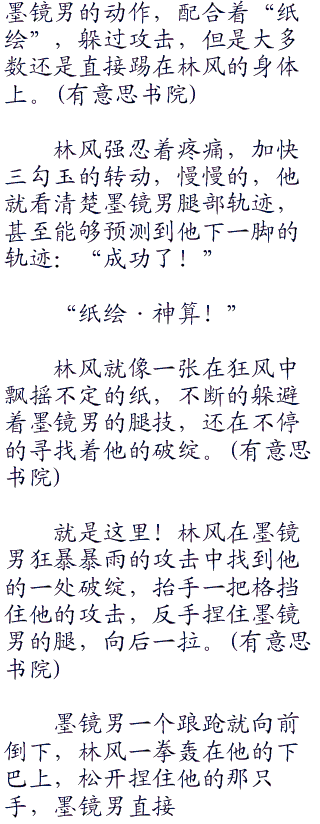 墨镜男的动作，配合着“纸
绘”，躲过攻击，但是大多
数还是直接踢在林风的身体
上。(有意思书院)
林风强忍着疼痛，加快
三勾玉的转动，慢慢的，他
就看清楚墨镜男腿部轨迹，
甚至能够预测到他下一脚的
轨迹：“成功了！”
“纸绘·神算！”
林风就像一张在狂风中
飘摇不定的纸，不断的躲避
着墨镜男的腿技，还在不停
的寻找着他的破绽。(有意思
书院)
就是这里！林风在墨镜
男狂暴暴雨的攻击中找到他
的一处破绽，抬手一把格挡
住他的攻击，反手捏住墨镜
男的腿，向后一拉。(有意思
书院)
墨镜男一个踉跄就向前
倒下，林风一拳轰在他的下
巴上，松开捏住他的那只
手，墨镜男直接